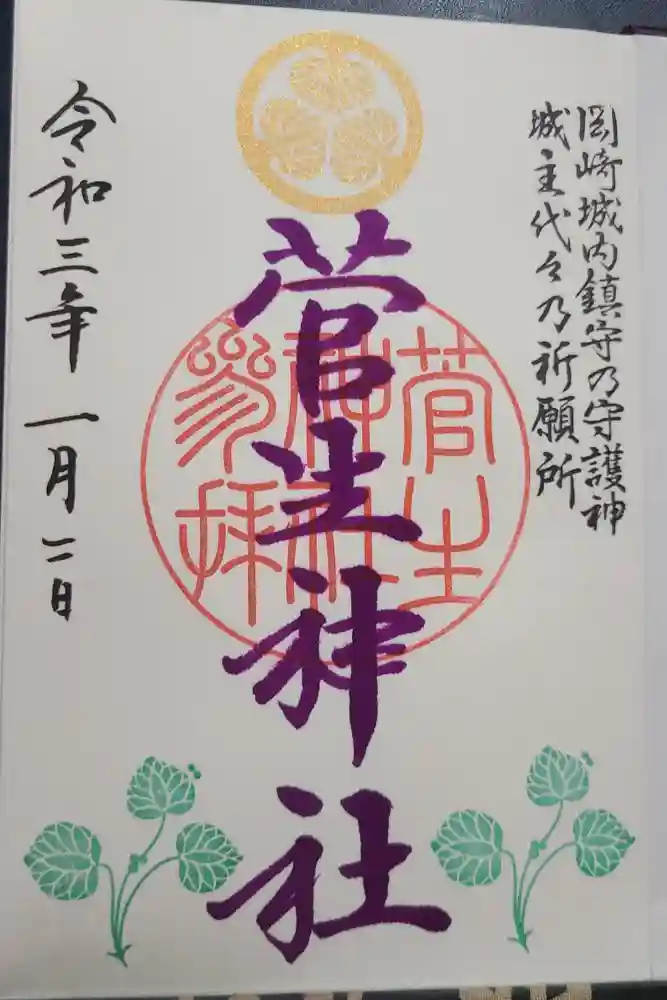 岡崎城内鎮守乃守護神
城主代々乃祈願所
菅生神社
菅生
神社
参拝
令和三年一月二日